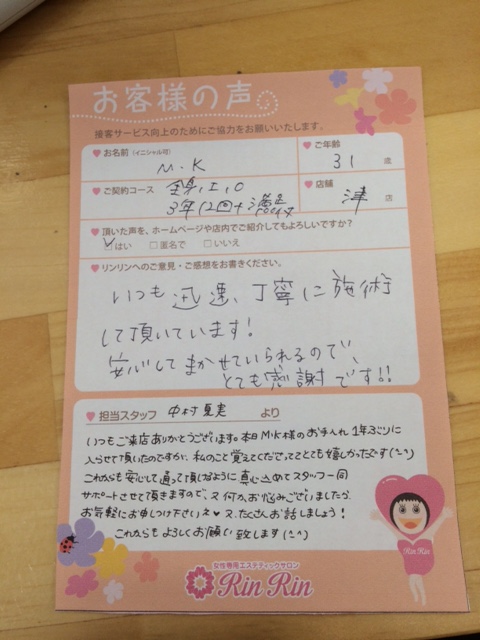 お客様の声
接客サービス向上のためにご協力をお願いいたします。
♥ お名前 (イニシャル可)
M・K
♥ ご年齢
31 歳
♥ ご契約コース
全身、I、O
3年12回+満足
♥ 店舗
津 店
♥ 頂いた声を、ホームページや店内でご紹介してもよろしいですか?
☑はい □匿名で □いいえ
♥ リンリンへのご意見・ご感想をお書きください。
いつも迅速、丁寧に施術
して頂いています!
安心してまかせていられるので、
とても感謝です!!
♥ 担当スタッフ 中村 夏実 より
いつもご来店ありがとうございます。本日M・K様のお手入れ1年ぶりに
入らせて頂いたのですが、私のこと覚えてくださってとても嬉しかったです(^-^)
これからも安心して通って頂けるように真心込めてスタッフ一同
サポートさせて頂きますので、又何かお悩みございましたら
お気軽にお申しつけ下さいネ♥ 又、たくさんお話しましょう!
これからもよろしくお願い致します(^-^)
Rin Rin
女性専用エステティックサロン
Rin Rin